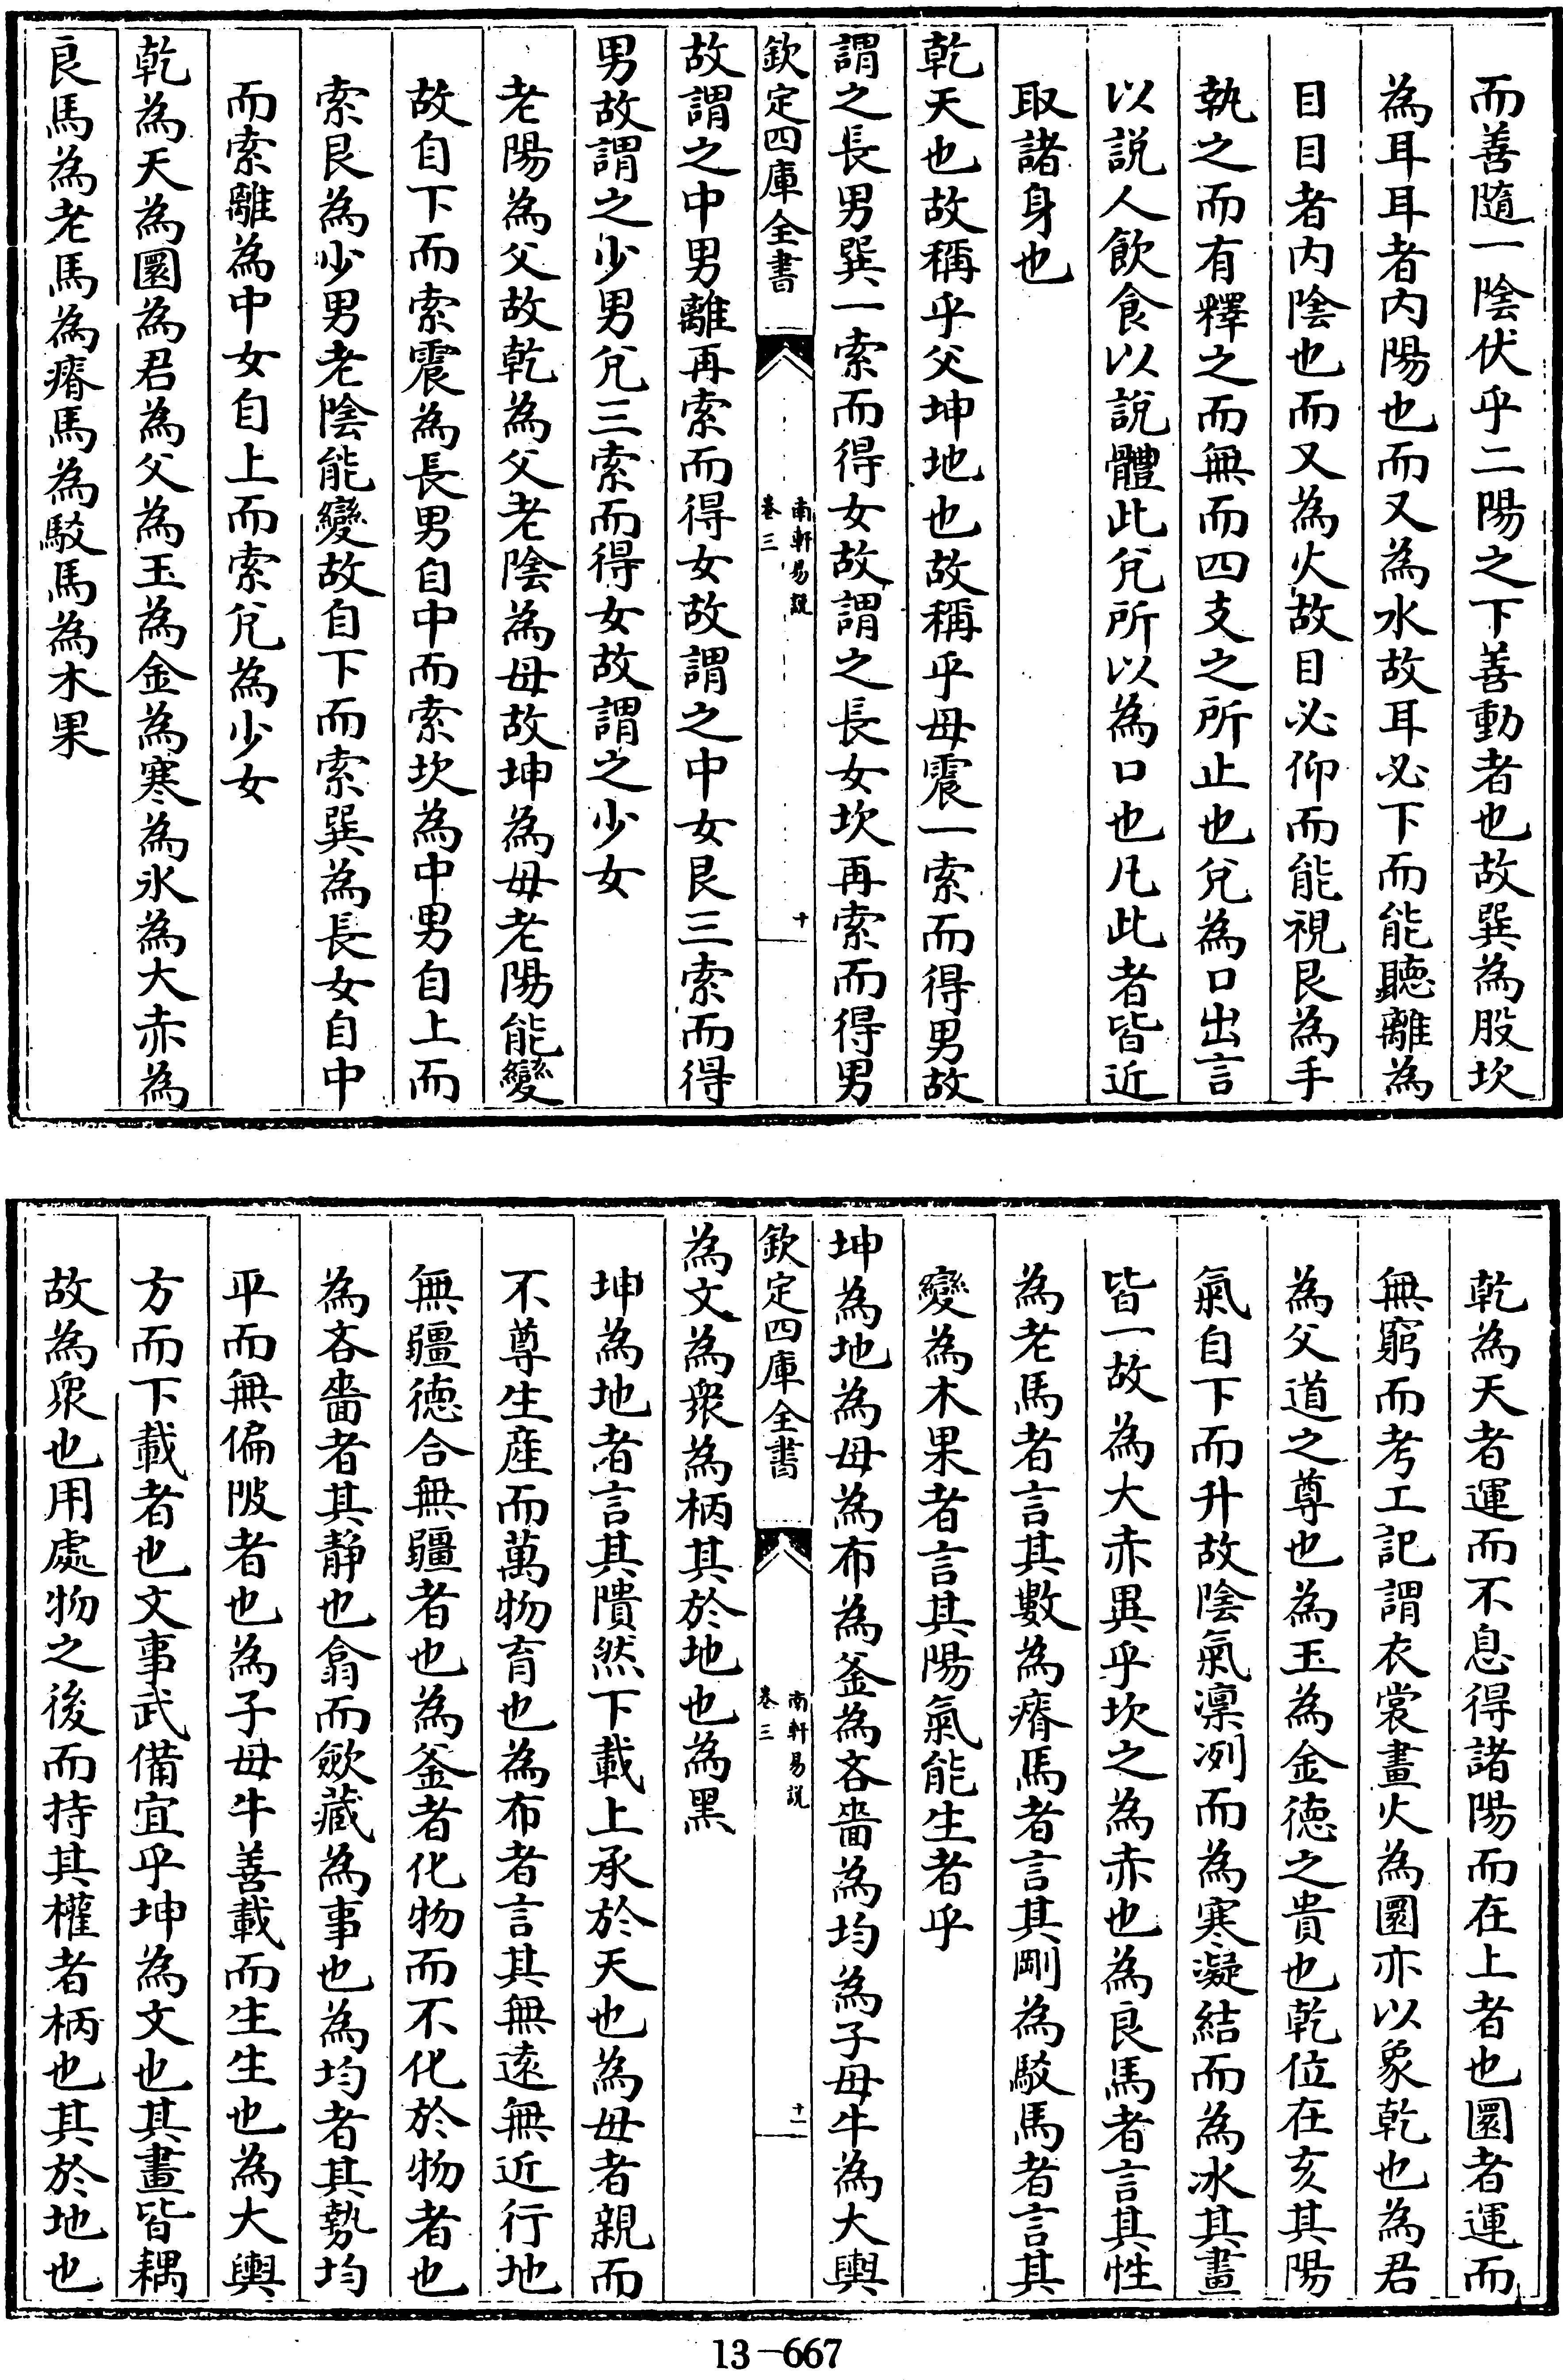 而善隨一陰伏乎二陽之下善動者也故巽為股坎
為耳耳者内陽也而又為水故耳必下而能聽離為
目目者内陰也而又為火故目必仰而能視艮為手
執之而有釋之而無而四支之所止也兌為口出言
以説人飲食以說體此兌所以為口也凡此者皆近
取諸身也
乾天也故稱乎父坤地也故稱乎母震一索而得男故
謂之長男巽一索而得女故謂之長女坎再索而得男
欽定四庫全書
南軒易說
卷三
十
故謂之中男離再索而得女故謂之中女艮三索而得
男故謂之少男兌三索而得女故謂之少女
老陽為父故乾為父老陰為母故坤為母老陽能變
故自下而索震為長男自中而索坎為中男自上而
索艮為少男老陰能變故自下而索巽為長女自中
而索離為中女自上而索兌為少女
乾為天為圜為君為父為玉為金為寒為氷為大赤為
良馬為老馬為瘠馬為駁馬為木果
乾為天者運而不息得諸陽而在上者也圜者運而
無窮而考工記謂衣裳畫火為圜亦以象乾也為君
為父道之尊也為玉為金德之貴也乾位在亥其陽
氣自下而升故陰氣凛冽而為寒凝結而為冰其畫
皆一故為大赤異乎坎之為赤也為良馬者言其性
為老馬者言其數為瘠馬者言其剛為駁馬者言其
變為木果者言其陽氣能生者乎
坤為地為母為布為釜為吝嗇為均為子母牛為大輿
欽定四庫全書
南軒易說
卷三
十一
為文為衆為柄其於地也為黑
坤為地者言其隤然下載上承於天也為母者親而
不尊生産而萬物育也為布者言其無遠無近行地
無疆德合無疆者也為釜者化物而不化於物者也
為吝嗇者其静也翕而歛藏為事也為均者其勢均
平而無偏陂者也為子母牛善載而生生也為大輿
方而下載者也文事武備宜乎坤為文也其畫皆耦
故為衆也用處物之後而持其權者柄也其於地也
13-667